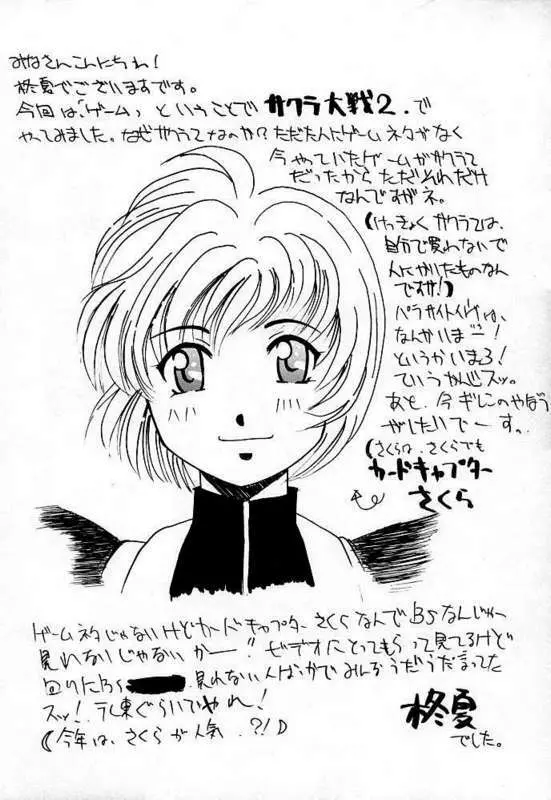 みなさんこんにちわ!
柊夏でございますです。
今回は、「ゲーム」ということでサクラ大戦2.で
やってみました。なぜサクラ2なのか?ただたんにゲームネタがなく
今やっていたゲームがサクラ2
だったからただそれだけ
なんですがネ。
(けっきょくサクラ2は、
自分で買わないで
人にかりたものなん
ですけど!)
パラサイトイヴは、
なんかいま一!
というかいま3!
ていうかんじスッ。
あと、今ギレンのやぼう
がしたいでーす。
(さくらは、さくらでも
カードキャプター
さくら
ゲームネタじゃないけどカードキャプターさくらなんでBSなんじゃー
見れないじゃないかー!ビデオにとってもらって見てるけど
回りにBS 見れない人ばっかでみんなうだうだまってた
スッ!テレ東ぐらいでやれ!
(今年は、さくらが人気.?!)
柊夏
でした。